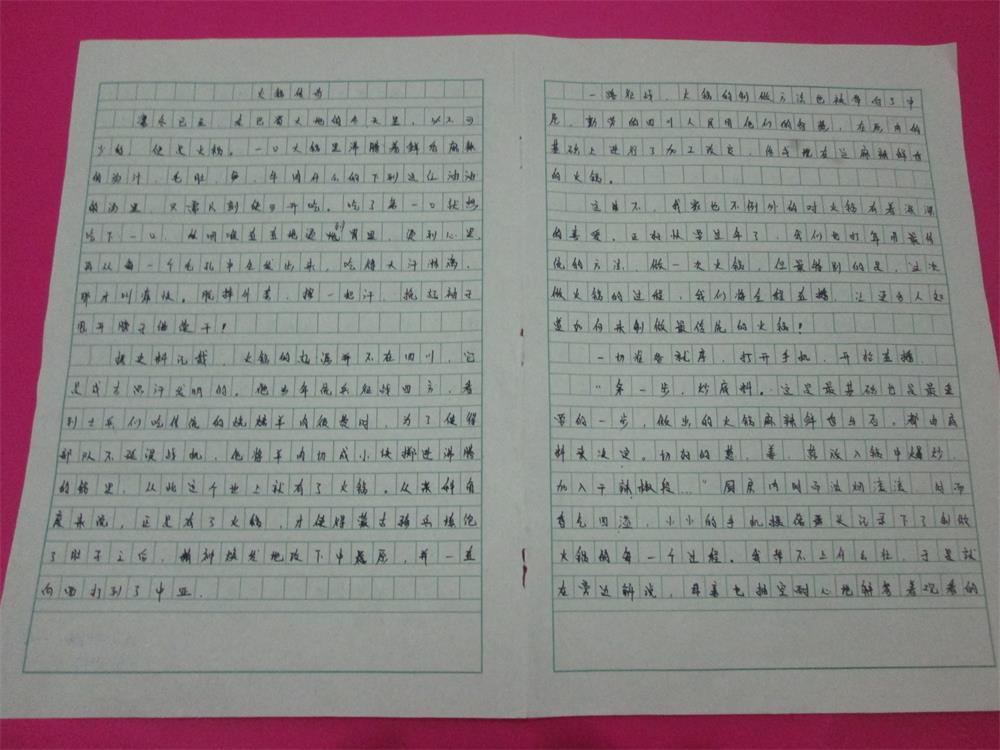 火锅传为
寒冬已至，在巴蜀大地的冬天里，必不可
少的，便是火锅。一口火锅里沸腾着鲜香麻辣
的汤汁，毛肚、鱼、牛肉什么的下到这红油油
的汤里，只需片刻便可开吃。吃了第一口就想
吃下一口，
再从每一个毛孔中全发出来，吃得大汗淋漓，
那才叫痛快。脱掉外套，擦一把汗，挽起袖子
甩开膀子继续干！
据史料记载，火锅的起源并不在四川，它
是成吉思汗发明的。他当年流兵征战四方，看
到士兵们吃传统的烧烤羊肉很费时，为了使得
部队不延误战机，他将羊肉切成小块掷进沸腾
的锅里，从此这个世上就有了火锅。从某种角
度来说，正是有了火锅，才使得蒙古骑兵填饱
了肚子之后，精神焕发地攻下中原，并一直
向西打到了中亚．
一路征战，火锅的制做方法也被带向了中
原，勤劳的四川人民用他们的智慧，在原有的
基础上进行了加工改良，
的火锅。
这不，我家也不例外的对火锅有着深深
的喜爱。正好快要过年了，我们也打算用最传
统的方法，做一次火锅，但最特别的是，这次
做火锅的过程，我们将全程直播，让更多人知
道如何来制做最传统的火锅！
一切准备就序，打开手机，开始直播
“第一步，炒底料。这是最基础也是最重
要的一步，做出的火锅麻辣鲜香与否，都由底
料来决定。切好的葱、姜、蒜放入锅中爆炒，
加入干辣椒段…”厨房内时
香气四溢，小小的手机摄像头记录下了制做
火锅的每一个过程。我帮不上什么忙，于是就
在旁边解说，母亲也抽空耐心地解答着观看的